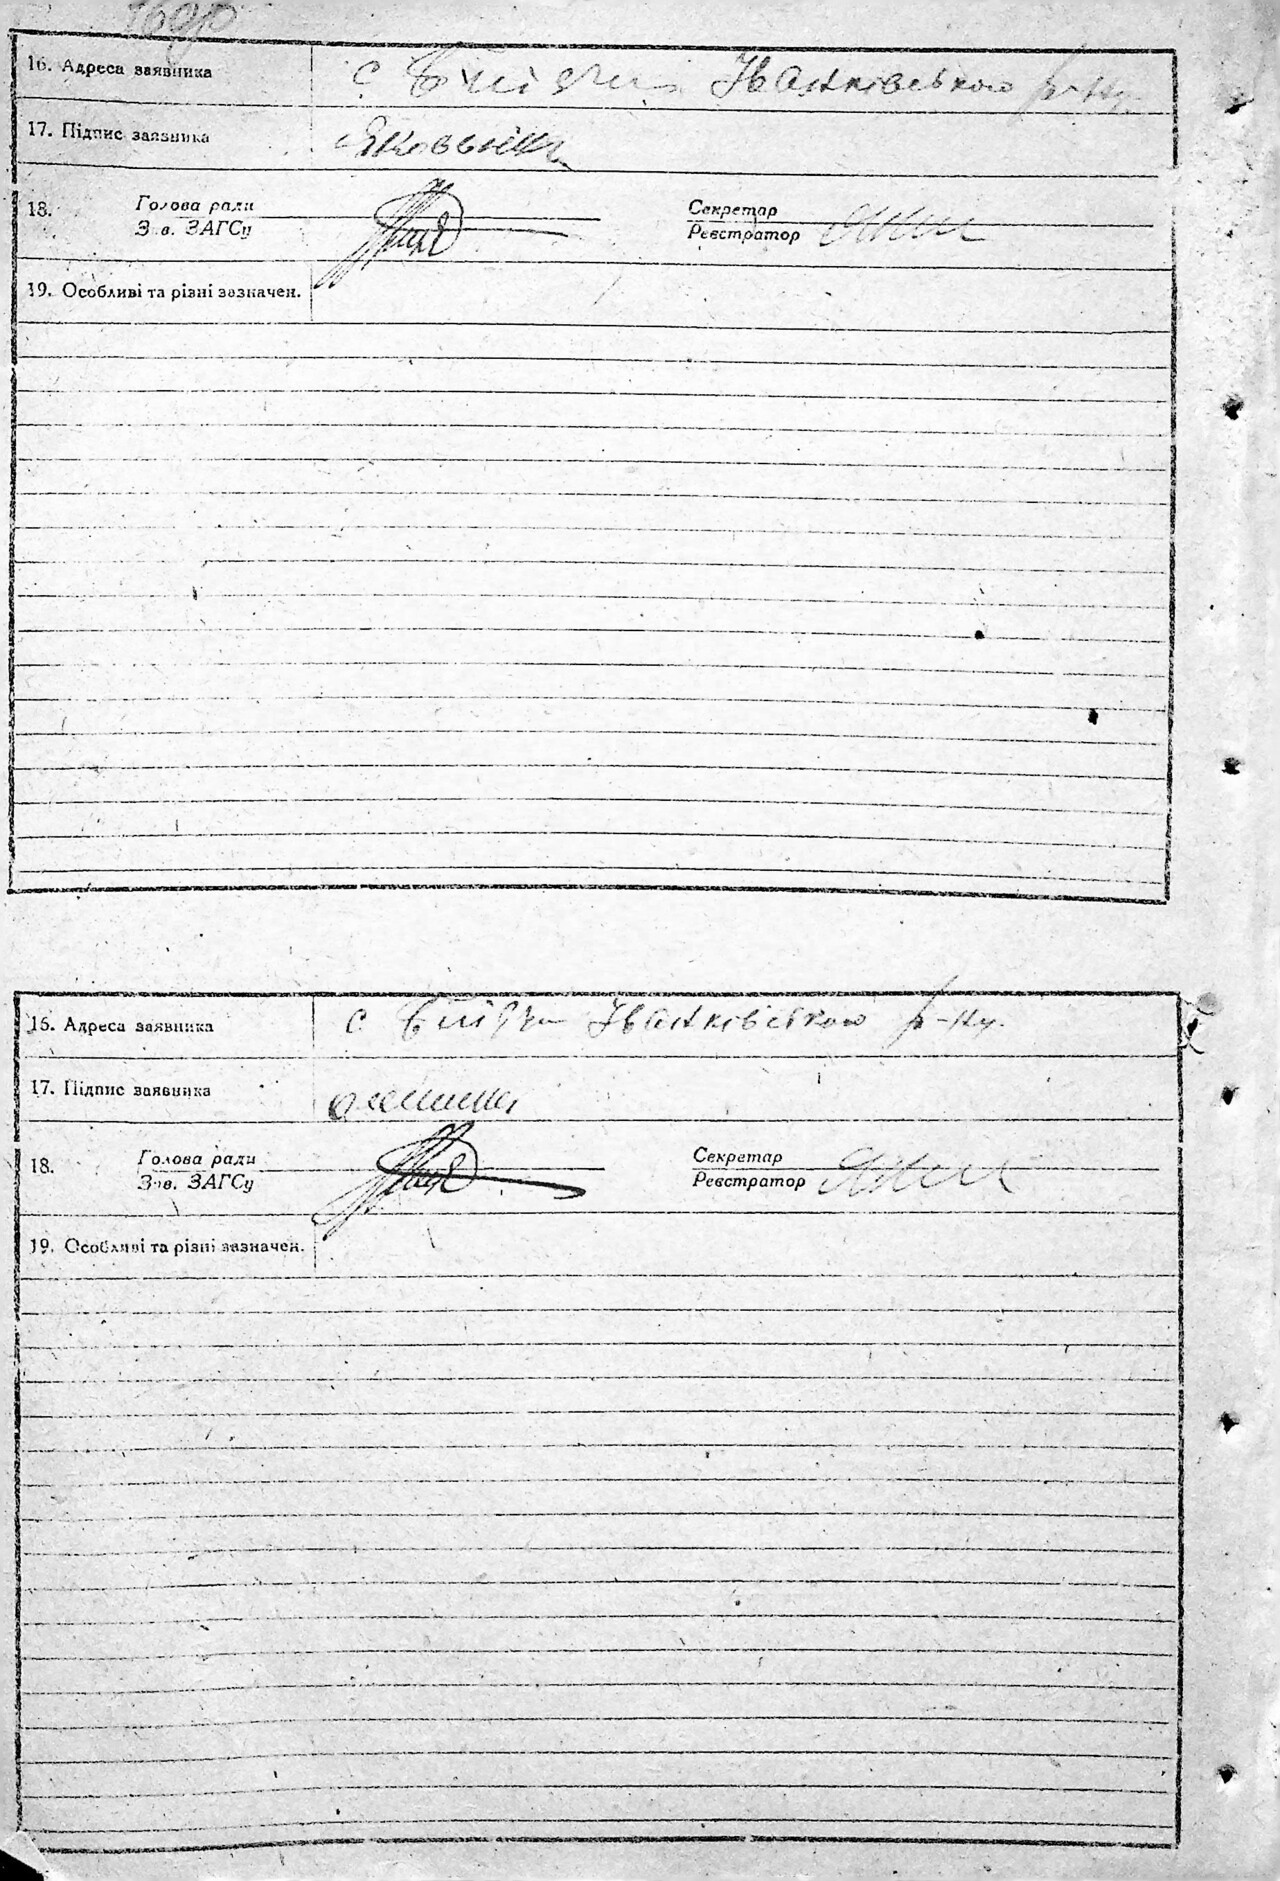 169
16. Адреса заявника с Блідча Іванківського р-ну
17. Підпис заявника
18. Голова ради Секретар
Зав. ЗАГСу Реєстратор
19. Особливі та різні зазначен.
16. Адреса заявника с. Блідча Іванківського р-ну.
17. Підпис заявника
18. Голова ради Секретар
Зав. ЗАГСу Реєстратор
19. Особливі та різні зазначен.